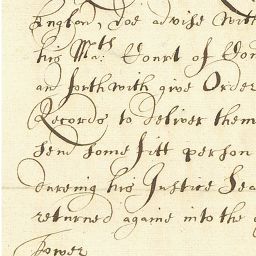 England, doe advise with
his Ma:ts Court of Com
and forthwith give Order
Records to deliver them
send some fitt person
dureing his Justice Sea
returned againe into the
Tower